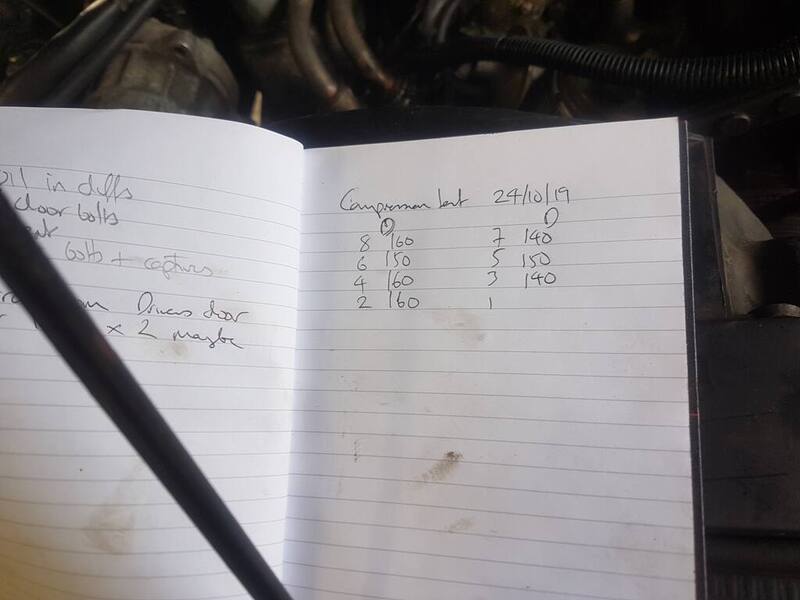 oil in diffs
door bolts
bolts + captures
Drivers door
x 2 maybe
Compression test 24/10/19
8 160 7 140
6 150 5 150
4 160 3 140
2 160 1